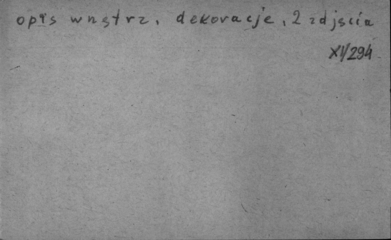 opis wnętrz, dekoracje, 2 zdjęcia
XI/294